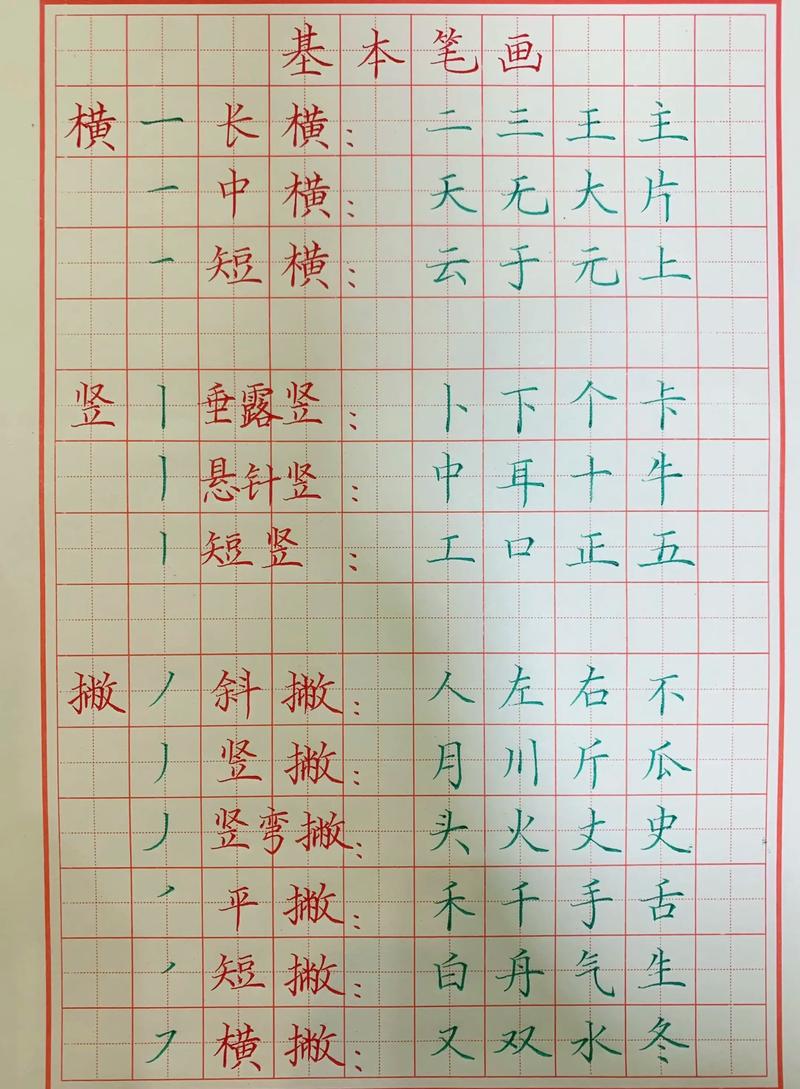 基本笔画
横 一 长横： 二 三 王 主
一 中横： 天 无 大 片
一 短横： 云 于 元 上
竖 丨 垂露竖： 卜 下 个 卡
丨 悬针竖： 中 耳 十 牛
丨 短竖： 工 口 正 五
撇 丿 斜撇： 人 左 右 不
丿 竖撇： 月 川 斤 瓜
丿 竖弯撇： 头 火 丈 史
㇒ 平撇： 禾 千 手 舌
㇒ 短撇： 白 舟 气 生
㇇ 横撇： 又 双 水 冬